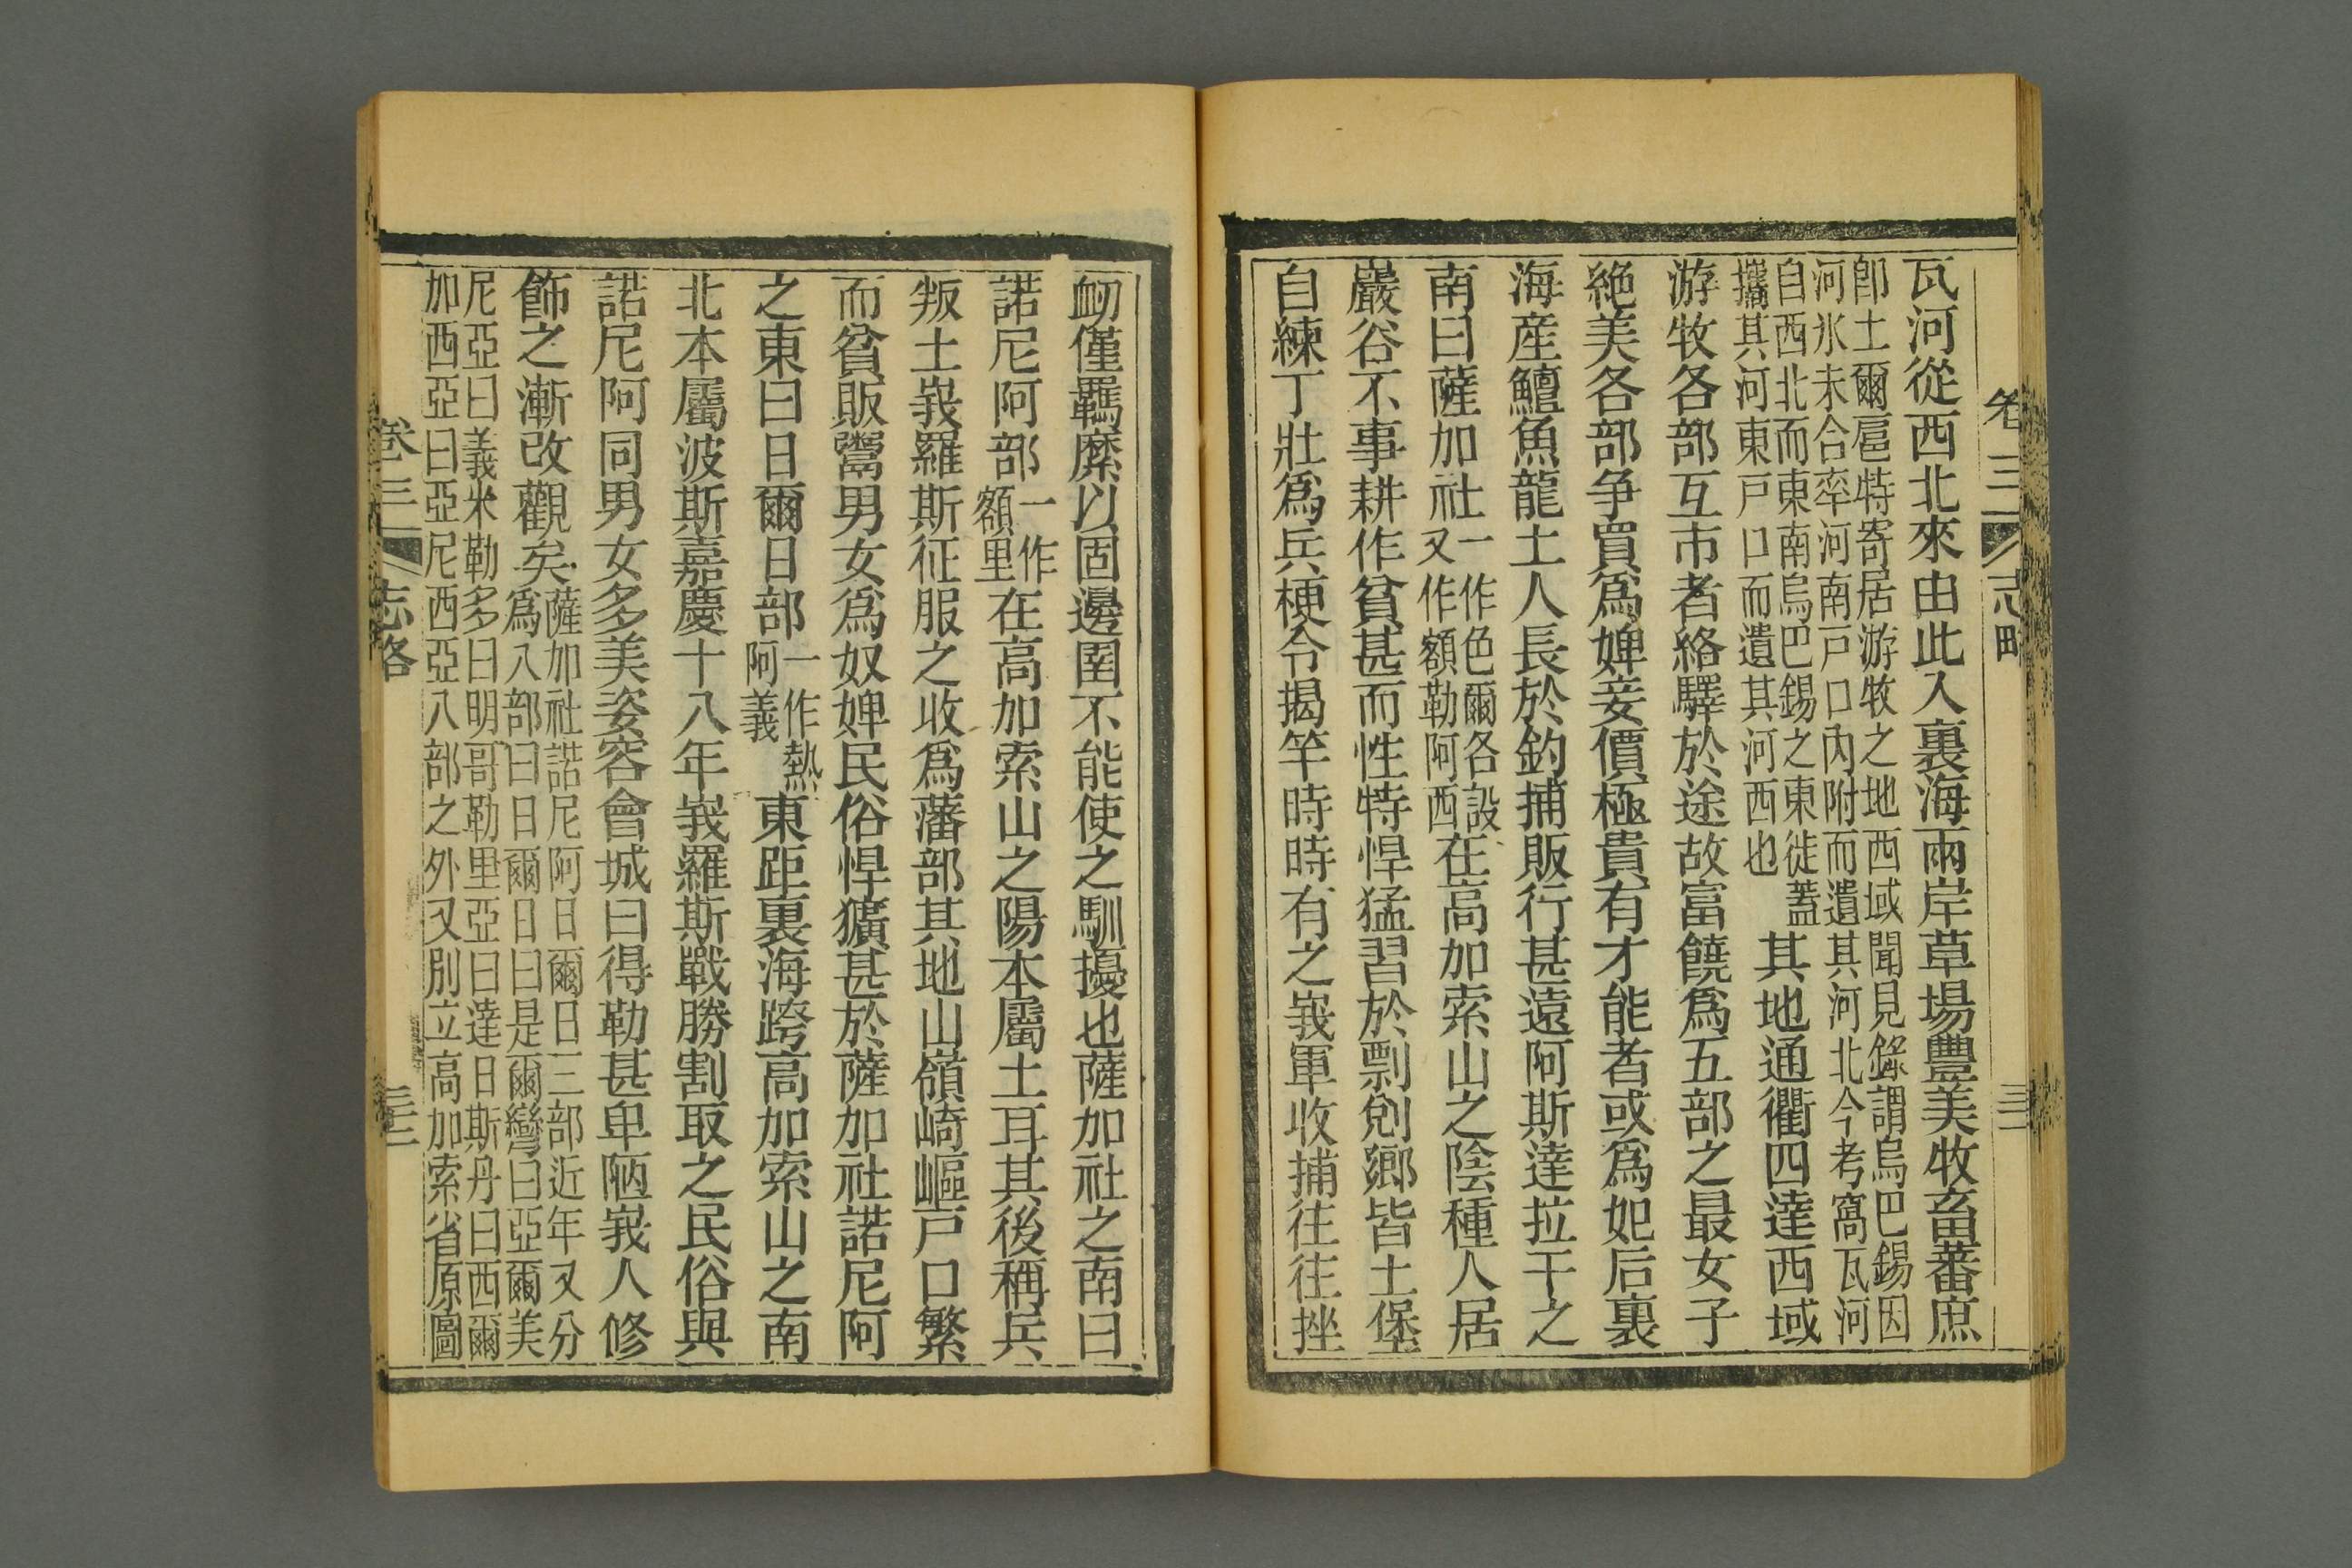 卷三
志略
三
瓦河從西北來由此入裏海兩岸草場豐美牧畜蕃庶
卽土爾扈特寄居游牧之地西域聞見錄謂烏巴錫因
河氷未合率河南戸口內附而遺其河北今考窩瓦河
自西北而東南烏巴錫之東徙蓋
攜其河東戸口而遺其河西也
其地通衢四達西域
游牧各部互市者絡驛於途故富饒爲五部之最女子
絶美各部争買爲婢妾價極貴有才能者或爲妃后裏
海産鱣魚龍土人長於釣捕販行甚遠阿斯達拉干之
南曰薩加社
一作色爾各設
又作額勒阿西
在高加索山之陰種人居
巖谷不事耕作貧甚而性特悍猛習於剽刧鄉皆土堡
自練丁壯爲兵梗令揭竿時時有之峩軍收捕往往挫
衂僅羈縻以固邊圉不能使之馴擾也薩加社之南曰
諾尼阿部
一作
額里
在高加索山之陽本屬土耳其後稱兵
叛土峩羅斯征服之收爲藩部其地山嶺崎嶇戸口繁
而貧販鬻男女爲奴婢民俗悍獷甚於薩加社諾尼阿
之東曰日爾日部
一作熱
阿義
東距裏海跨高加索山之南
北本屬波斯嘉慶十八年峩羅斯戰勝割取之民俗與
諾尼阿同男女多美姿容會城曰得勒甚卑陋峩人修
飾之漸改觀矣
薩加社諾尼阿日爾日三部近年又分
爲八部曰日爾日曰是爾彎曰亞爾美
尼亞曰義米勒多曰明哥勒里亞曰達日斯丹曰西爾
加西亞曰亞尼西亞八部之外又別立高加索省原圖
卷三
志略
三二